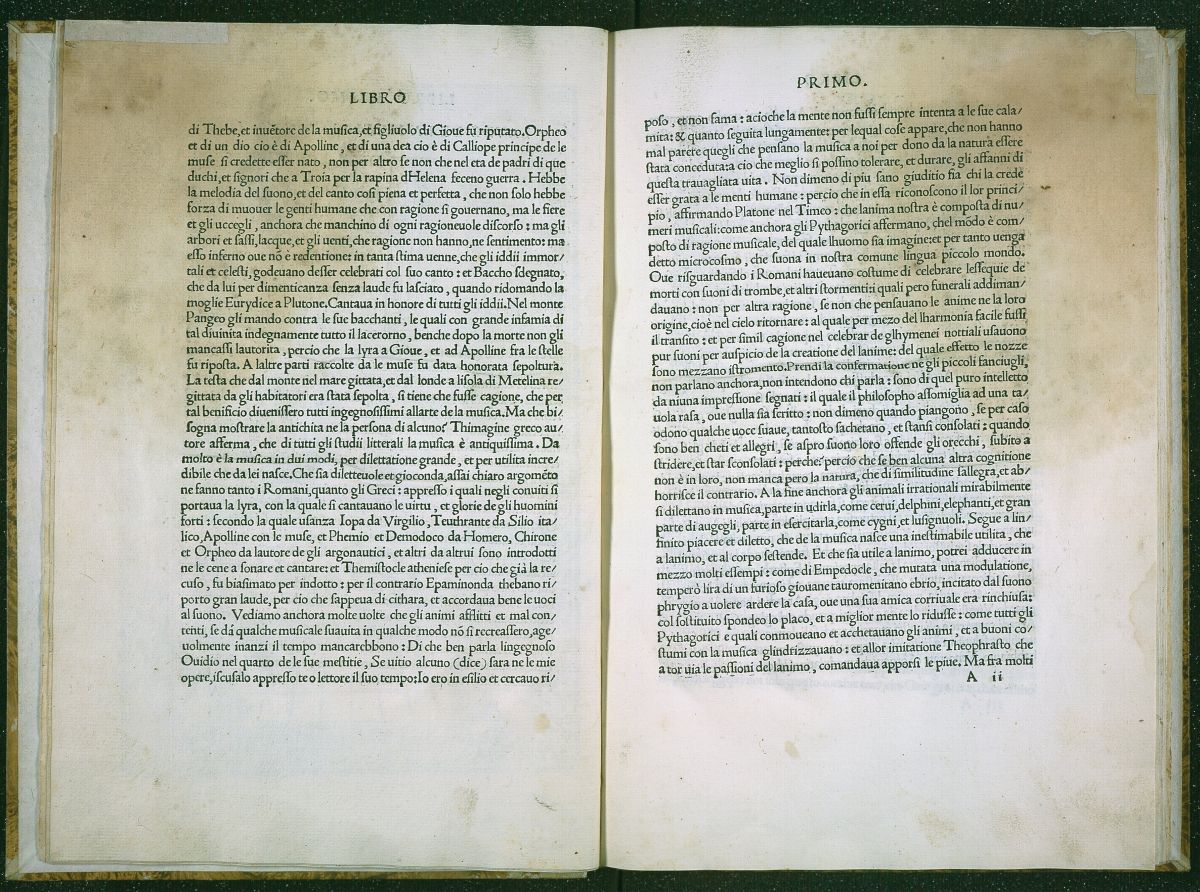 LIBRO
di Thebe,et inuẽtore de la musica,et figliuolo di Gioue fu riputato.Orpheo
et di un dio cio è di Apolline, et di una dea cio è di Calliope principe de le
muse si credette esser nato, non per altro se non che nel eta de padri di que
duchi,et signori che a Troia per la rapina dHelena feceno guerra. Hebbe
la melodia del suono,et del canto cosi piena et perfetta, che non solo hebbe
forza di muouer le genti humane che con ragione si gouernano, ma le fiere
et gli uccegli, anchora che manchino di ogni ragioneuole discorso: ma gli
arbori et sassi,lacque,et gli uenti,che ragione non hanno,ne sentimento: ma
esso inferno oue nõ è redentione: in tanta stima uenne,che gli iddii immor/
tali et celesti, godeuano desser celebrati col suo canto: et Baccho sdegnato,
che da lui per dimenticanza senza laude fu lasciato, quando ridomando la
moglie Eurydice a Plutone.Cantaua in honore di tutti gli iddii.Nel monte
Pangeo gli mando contra le sue bacchanti, le quali con grande infamia di
tal diuinita indegnamente tutto il lacerorno, benche dopo la morte non gli
mancassi lautorita, percio che la lyra a Gioue, et ad Apolline fra le stelle
fu riposta. A laltre parti raccolte da le muse fu data honorata sepoltura.
La testa che dal monte nel mare gittata,et dal londe a lisola di Metelina re/
gittata da gli habitatori era stata sepolta, si tiene che fusse cagione, che per
tal benificio diuenissero tutti ingegnosissimi allarte de la musica.Ma che bi/
sogna mostrare la antichita ne la persona di alcuno? Thimagine greco au/
tore afferma, che di tutti gli studii litterali la musica è antiquissima. Da
molto è la musica in dui modi, per dilettatione grande, et per utilita incre/
dibile che da lei nasce.Che sia diletteuole et gioconda,assai chiaro argomẽto
ne fanno tanto i Romani,quanto gli Greci: appresso i quali negli conuiti si
portaua la lyra, con la quale si cantauano le uirtu, et glorie de gli huomini
forti: secondo la quale usanza Iopa da Virgilio, Teuthrante da Silio ita/
lico,Apolline con le muse, et Phemio et Demodoco da Homero, Chirone
et Orpheo da lautore de gli argonautici, et altri da altrui sono introdotti
ne le cene a sonare et cantare: et Themistocle atheniese per cio che già la re/
cuso, fu biasimato per indotto: per il contrario Epaminonda thebano ri/
porto gran laude, per cio che sappeua di cithara, et accordaua bene le uoci
al suono. Vediamo anchora molte uolte che gli animi afflitti et mal con/
tenti, se dá qualche musicale suauita in qualche modo nõ si recreassero,age/
uolmente inanzi il tempo mancarebbono: Di che ben parla lingegnoso
Ouidio nel quarto de le sue mestitie, Se uitio alcuno (dice) sara ne le mie
opere,iscusalo appresso te o lettore il suo tempo:Io ero in esilio et cercauo ri/
PRIMO.
poso, et non fama: acioche la mente non fussi sempre intenta a le sue cala/
mita: & quanto seguita lungamente: per lequal cose appare,che non hanno
mal parere quegli che pensano la musica a noi per dono da la natura essere
stata conceduta:a cio che meglio si possino tolerare, et durare, gli affanni di
questa trauagliata uita. Non dimeno di piu sano giuditio sia chi la crede
esser grata a le menti humane: percio che in essa riconoscono il lor princi/
pio, affirmando Platone nel Timeo: che lanima nostra è composta di nu/
meri musicali:come anchora gli Pythagorici affermano, chel mõdo è com/
posto di ragione musicale, del quale lhuomo sia imagine:et per tanto uenga
detto microcosmo, che suona in nostra comune lingua piccolo mondo.
Oue risguardando i Romani haueuano costume di celebrare lessequie de
morti con suoni di trombe,et altri stormenti:i quali pero funerali addiman/
dauano: non per altra ragione, se non che pensauano le anime ne la loro
origine,cioè nel cielo ritornare: al quale per mezo del lharmonia facile fussi
il transito: et per simil cagione nel celebrar de glhymenei nottiali usauono
pur suoni per auspicio de la creatione del lanime: del quale effetto le nozze
sono mezzano istromento.Prendi la confermatione ne gli piccoli fanciugli,
non parlano anchora,non intendono chi parla: sono di quel puro intelletto
da niuna impressione segnati: il quale il philosopho assomiglia ad una ta/
uola rasa, oue nulla sia scritto: non dimeno quando piangono, se per caso
odono qualche uoce suaue, tantosto sachetano, et stansi consolati: quando
sono ben cheti et allegri, se aspro suono loro offende gli orecchi, subito a
stridere,et star sconsolati: perche? percio che se ben alcuna altra cognitione
non è in loro, non manca pero la natura, che di similitudine sallegra,et ab/
horrisce il contrario. A la fine anchora gli animali irrationali mirabilmente
si dilettano in musica,parte in udirla,come cerui,delphini,elephanti,et gran
parte di augegli, parte in esercitarla,come cygni,et lusignuoli. Segue a lin/
finito piacere et diletto, che de la musica nasce una inestimabile utilita, che
a lanimo, et al corpo sestende. Et che sia utile a lanimo, potrei adducere in
mezzo molti essempi: come di Empedocle, che mutata una modulatione,
temperò lira di un furioso giouane tauromenitano ebrio, incitato dal suono
phrygio a uolere ardere la casa, oue una sua amica corriuale era rinchiusa:
col sostituito spondeo lo placo, et a miglior mente lo ridusse: come tutti gli
Pythagorici e quali conmoueano et acchetauano gli animi, et a buoni co/
stumi con la musica glindrizzauano: et allor imitatione Theophrasto che
a tor uia le passioni del lanimo, comandaua apporsi le piue. Ma fra molti
A ii